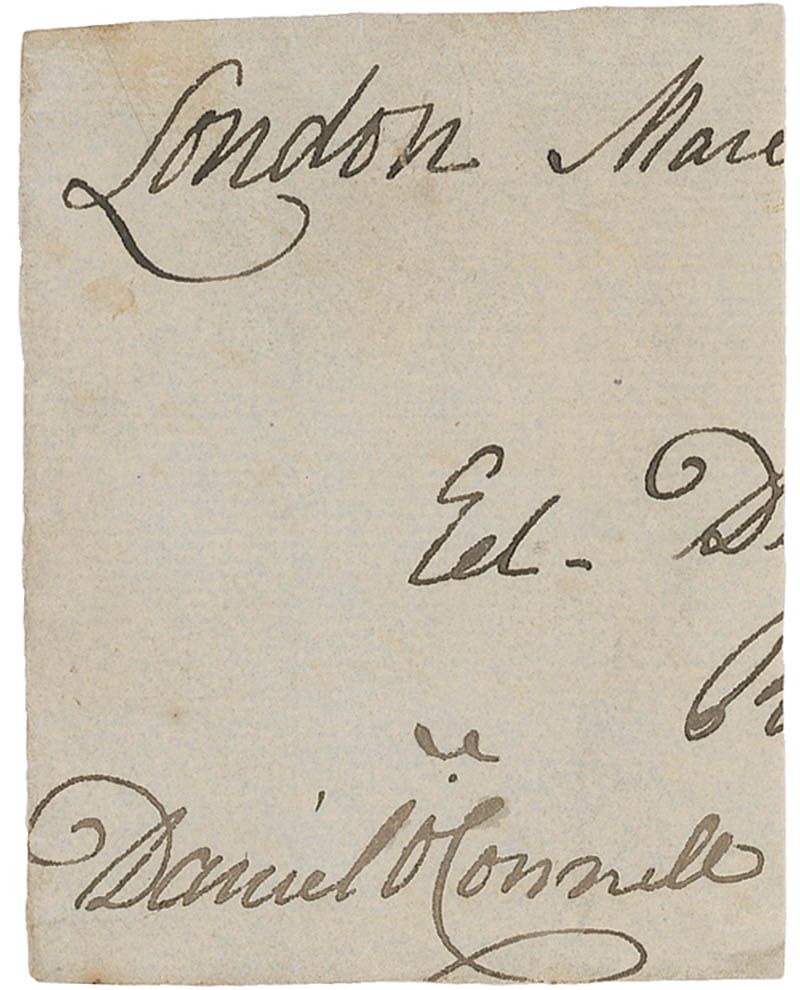 London Marc
Ed - D
Daniel O'Connell